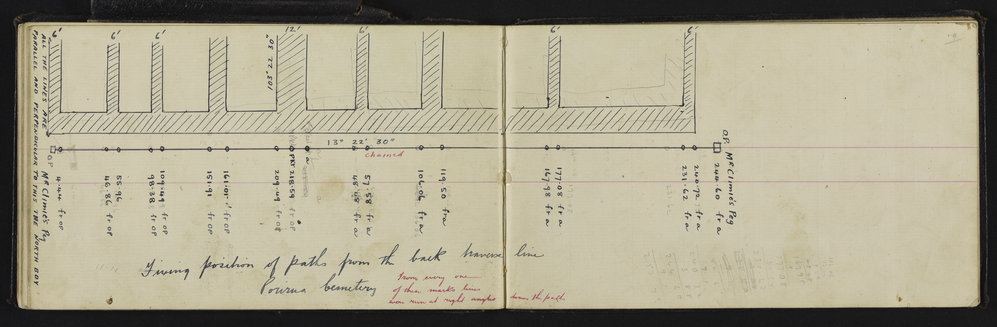 6'
6'
6'
12'
6'
6'
6'
ALL THE LINES ARE
PARALLEL AND PERPENDICULAR TO THIS THE NORTH BDY
103° 22' 30"
13° 22' 30"
chained
OP MR Climie's Peg
4.44 fr OP
46.86 fr OP
55.96
98.38 fr OP
109.49 fr OP
151.91 fr OP
161.01 fr OP
209.49 fr OP
218.59 fr OP
fr a
85.75 fr a
106.06 fr a
119.50 fr a
167.98 fr a
177.08 fr a
231.62 fr a
240.72 fr a
240.60 fr a
OP MR Climie's Peg
Fixing position of paths from the back traverse line
Porirua Cemetery
From every one
of these marks lines
were run at right angles down the path